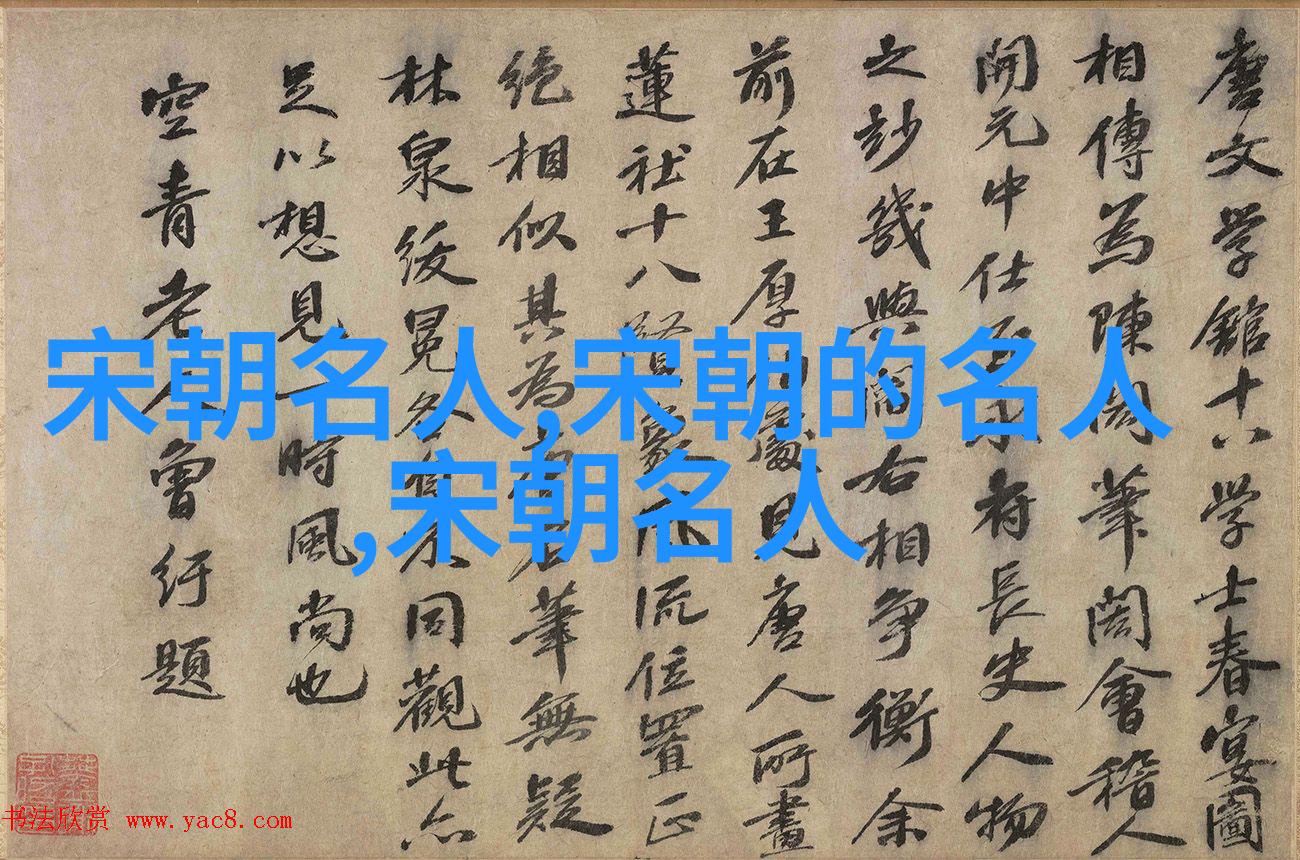 唐文学館十八学士春宴圖
相傳為陳閎筆閎會稽人
開元中仕府長史人物
之妙幾與閻右相争衡余
前在王厚處見唐人所畫
蓮社十八賢位置正
絶相似其為筆無疑
林泉同觀此亦
足以想見一時風尚也
空青老人曾紆題
宋朝名人,宋朝的名人
,宋朝名人
书法欣赏 www.yac8.com